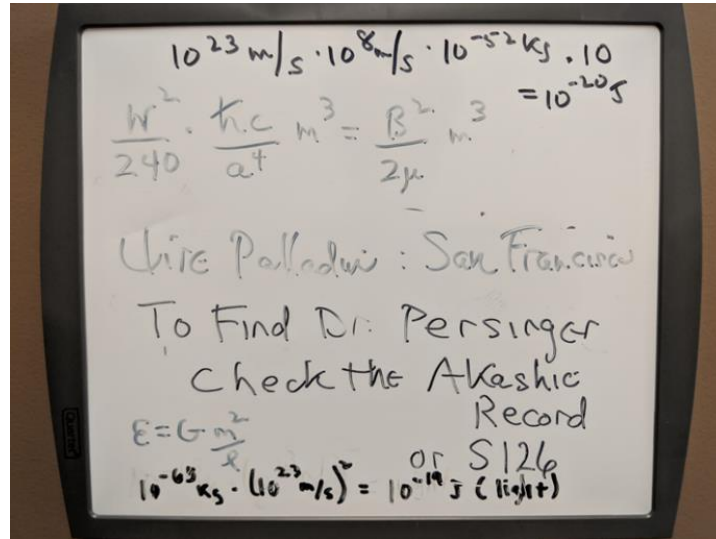 10^23 m/s · 10^8 m/s · 10^-52 kg · 10
= 10^-20 J
π^2/240 · ħ.c/a^4 m^3 = B^2/2μ m^3
: San Francisco
To Find Dr. Persinger
Check the Akashic
Record
or S126
ε = G m^2/l
10^-65 kg · (10^23 m/s)^2 = 10^-19 J (light)
QUARTET